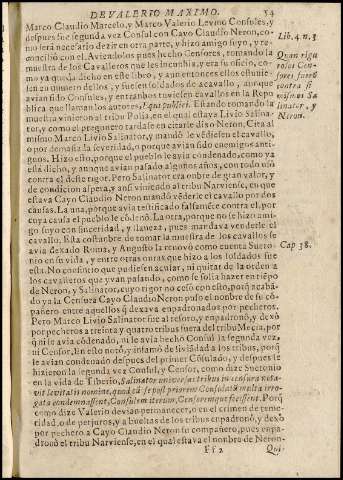 DE VALERIO MAXIMO.
54
Marco Claudio Marcelo, y Marco Valerio Levino Consules, y
despues fue segunda vez Consul con Cayo Claudio Neron, co-
mo será necesario dezir en otra parte, y hizo amigo suyo, y re-
concilióse con el. Aviendolos pues hecho Censores, tomando la
muestra de los Cavalleros que les incumbia, y era su oficio, co-
mo ya queda dicho en este libro, y aunque entonces ellos estuvies-
sen en numero dellos, y fuessen soldados de acavallo, aunque
avian sido Consules, y entrambos tuviessen cavallos en la Repu
blica que llaman los autores, Equi publici. Estando tomando la
muestra vinieron al tribu Polia, en el qual estava Livio Salina-
tor, y como el preguntero tardase en citarle dixo Neron, Cita al
mismo Marco Livio Salinator, y mandó le vẽdiessen el cavallo,
o por demasia la severidad, o porque avian sido enemigos anti-
guos. Hizo esto, porque el pueblo le avia condenado, como ya
està dicho, y aunque avian pasado algunos años, con todo esso
contra el dicho rigor. Pero Salinator era onbre de gran valor, y
de condicion aspera, y assi viniendo al tribu Narviense, en que
estava Cayo Claudio Neron mandó vẽderle el cavallo por dos
causas. La una, porque avia testificado falsamẽte contra el, por
cuya causa el pueblo le códenò. La otra, porque no se hizo ami-
go suyo con sinceridad, y llaneza, pues mandava venderle el
cavallo. Esta costunbre de tomar la muestra de los cavallos se
avia dexado Roma, y Augusto la renovó como cuenta Sueto-
nio en su vida, y entre otras cosas que hizo a los soldados fue
esta. No consintio que pudiessen acular, ni quitar de la ordẽ a
los cavalleros que yvan pasando, como se solia hazer en tiẽpo
de Neron, y Salinator, cuyo rigor no cesó con esto, porq̃ acabã
do ya la Censura Cayo Claudio Neron puso el nombre de su cõ-
pañero entre aquellos q̃ dexava enpadronados por pecheros.
Pero Marco Livio Salinator fue al tesoro, y enpadronó, y dexò
por pecheros a treinta y quatro tribus fuera del tribu Mecia, por
q̃ ni le avia códenado, ni le avia hechò Consul la segunda vez,
ni Censor. En esto notó, y infamó de liviãdad a los tribus, porq̃
le avian condenado despues del primer Cósulado, y despues le
hizieron la segunda vez Consul, y Censor, como dize Suetonio
en la vida de Tiberio, Salinator universas tribus in censura nota-
vit levitatis nomine, quod cũ se post priorem Consulatũ multa irro-
gata condemnassent, Consulem iterum, Censoremque fecissent. Porq̃
como dize Valerio devian permanecer, o en el crimen de teme-
ridad, o de perjuros, y a bueltas de los tribus enpadronó, y dexò
por pechero a Cayo Claudio Neron su compañero, pues enpa-
dronó el tribu Narviense, en el qual estava el nombre de Neron.
Ff 2
Qui-
Lib. 4. n. 3
Quan rigu
rosos Cen-
sores fuerõ
contra si
mismos Sa
linator, y
Neron.
Cap 38.